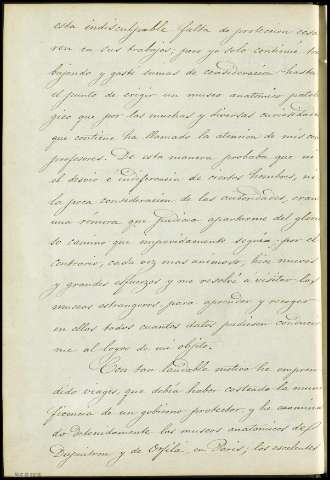 esta indisculpable falta de proteccion cesa
ren en sus trabajos; pero yo solo continué tra
bajando y gasté sumas de consideracion hasta
el punto de erigir un museo anatómico patoló
gico que por las muchas y diversas curiosidades
que contiene ha llamado la atencion de mis com
profesores. De esta manera probaba que ni
el desvio é indiferencia de ciertos hombres, ni
la poca consideracion de las autoridades, eran
una rémora que pudiera apartarme del glorio
so camino que emprendiamente seguia: por el
contrario, cada vez mas animoso, hice nuevos
y grandes esfuerzos y me resolví a visitar los
museos estrangeros para aprender y recoger
en ellos todos cuantos datos pudiesen conducir
me al logro de mi objeto.
Con tan laudable motivo he empren
dido viages, que debia haber costeado la muni
ficencia de un gobierno protector, y he examina
do detenidamente los museos anatómicos de
Dupuitren y de Orfila, en Paris; los escelentes